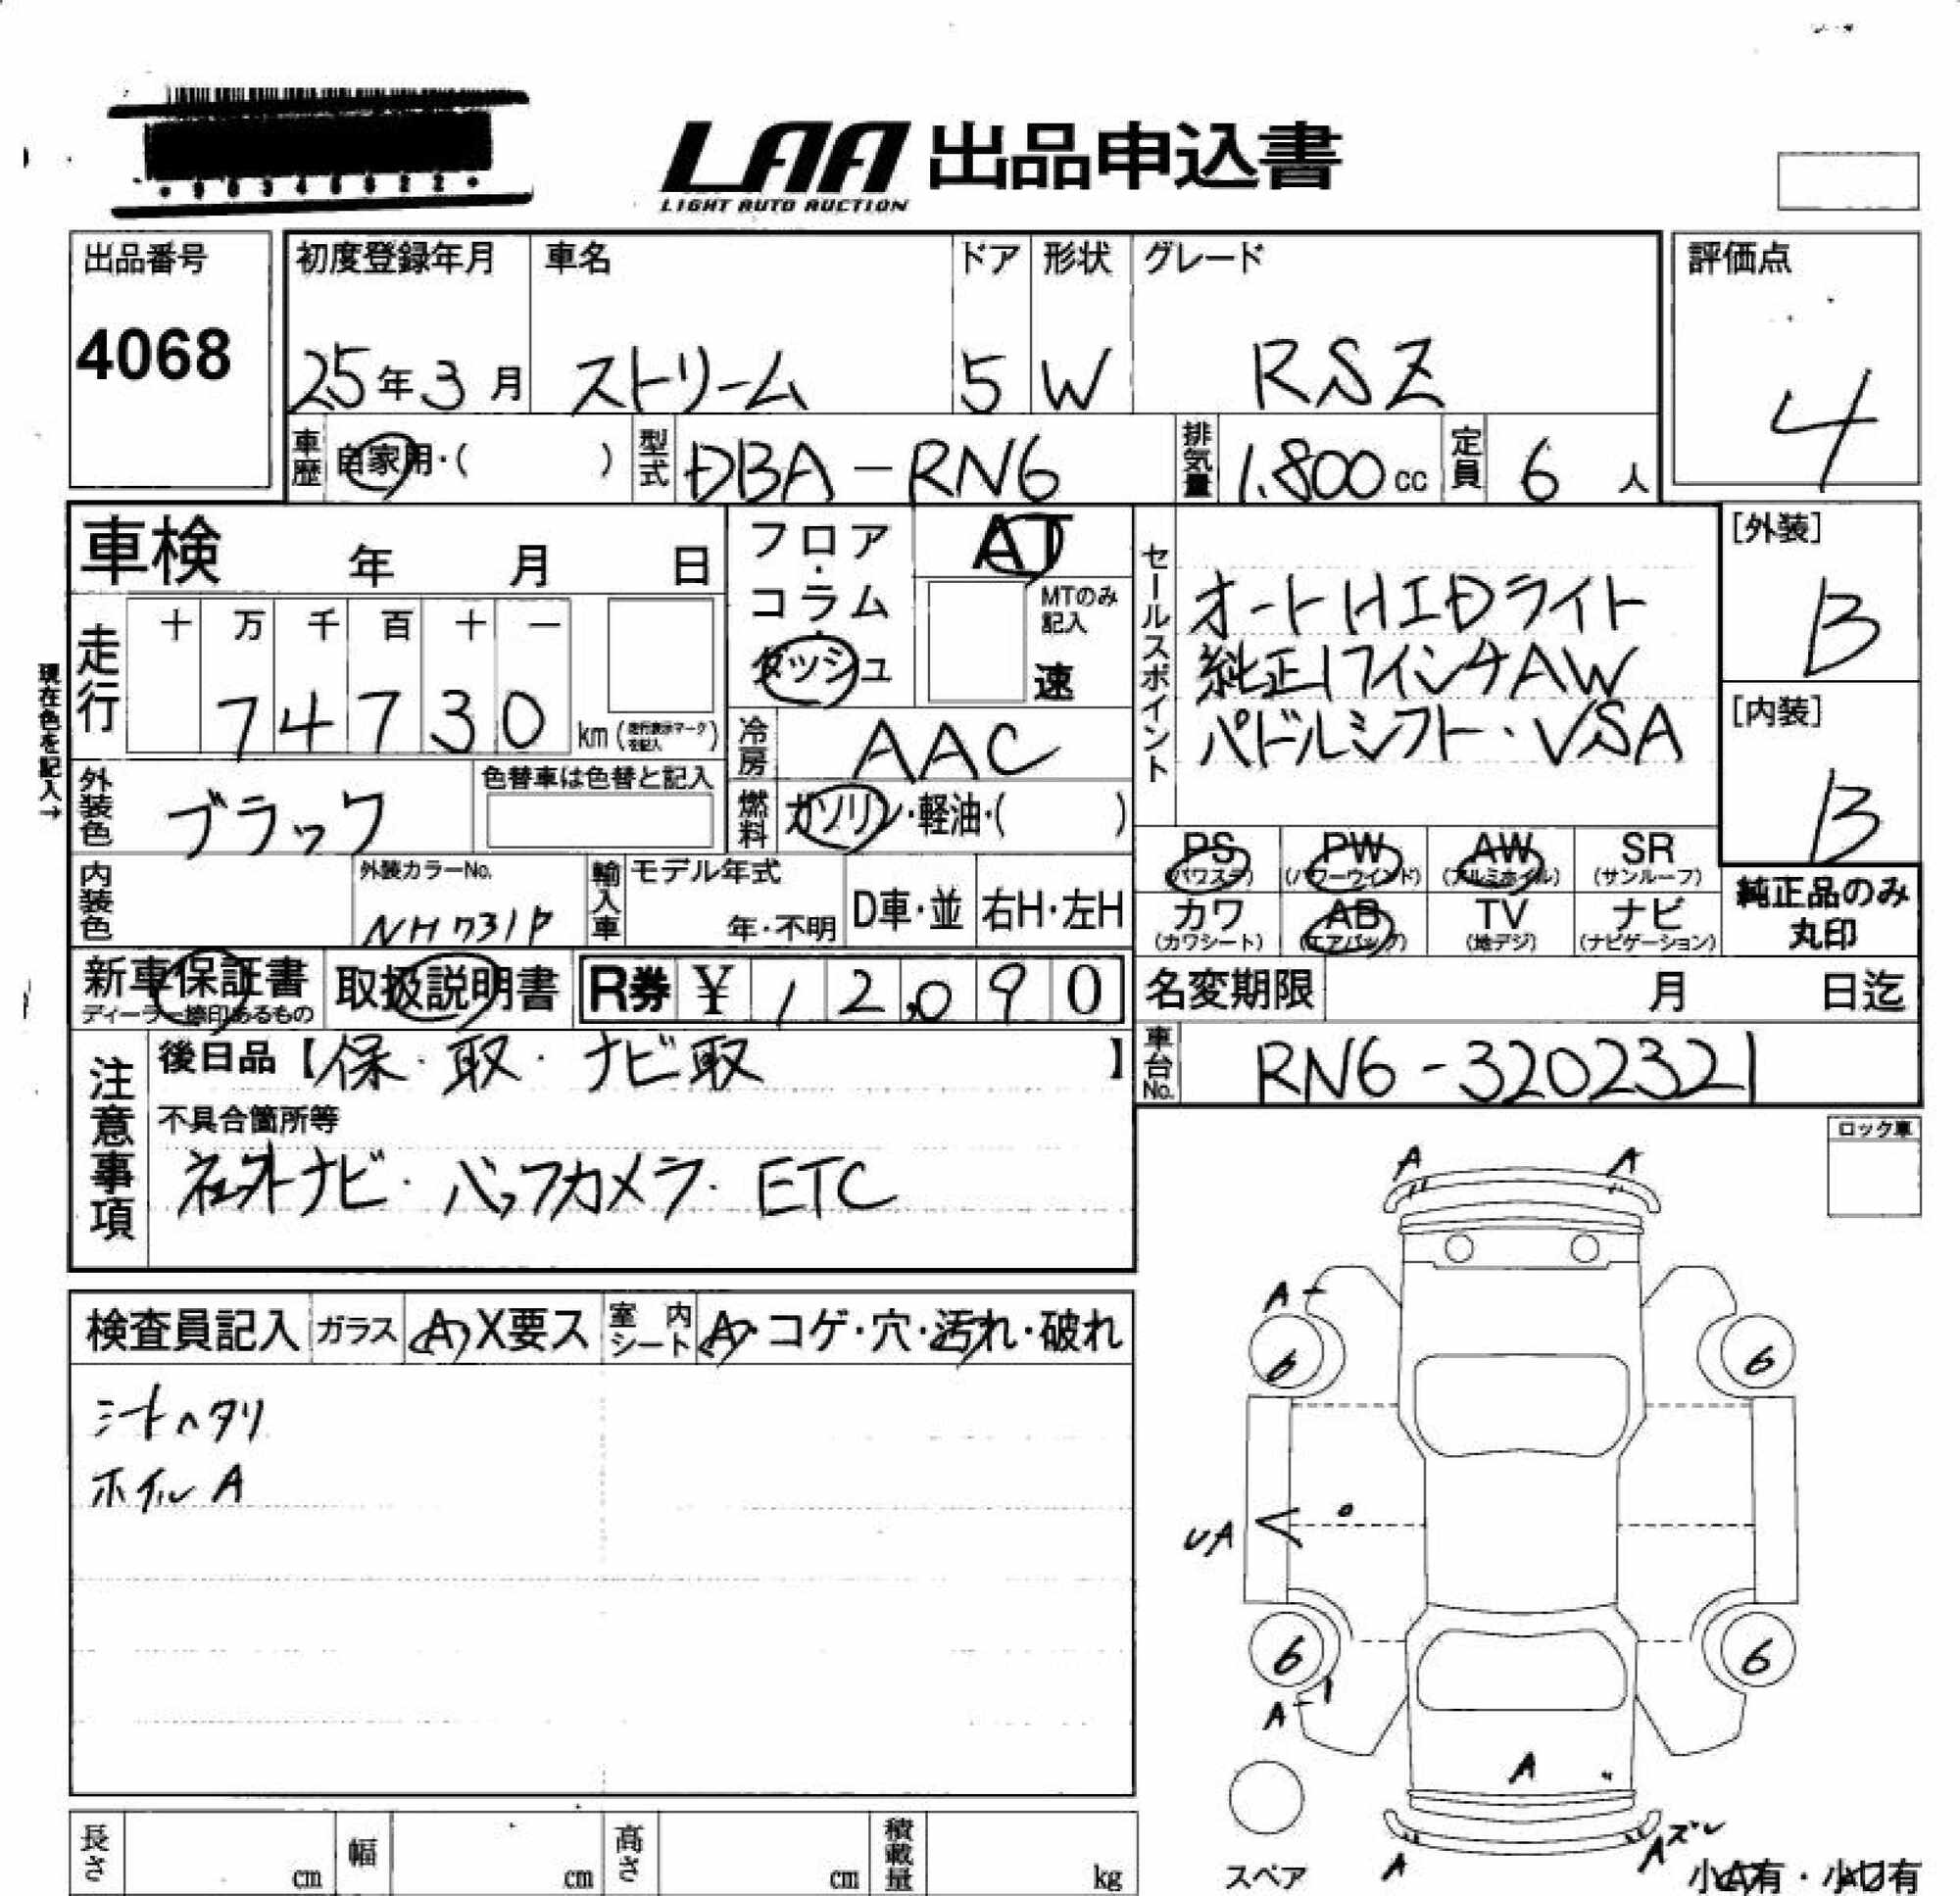 LAA 出品申込書
LIGHT AUTO AUCTION
出品番号
4068
初度登録年月
25年3月
車名
ストリーム
ドア
5
形状
W
グレード
RSZ
評価点
4
車歴
自家用・( )
型式
DBA-RN6
排気量
1.800cc
定員
6人
車検 年 月 日
現在色を記入→
走行
十 万 千 百 十 一
7 4 7 3 0 km
フロア・コラム・ダッシュ
AT
MTのみ記入
速
冷房
AAC
燃料
ガソリン・軽油・( )
外装色
ブラック
色替車は色替と記入
内装色
外装カラーNo.
NH731P
輸入車
モデル年式
年・不明
D車・並
右H・左H
セールスポイント
オートHIDライト
純正17インチAW
パドルシフト・VSA
[外装]
B
[内装]
B
PS (パワステ)
PW (パワーウインド)
AW (アルミホイル)
SR (サンルーフ)
カワ (カワシート)
AB (エアバッグ)
TV (地デジ)
ナビ (ナビゲーション)
純正品のみ丸印
新車保証書
ディーラー捺印あるもの
取扱説明書
R券 ¥ 12,090
名変期限 月 日迄
車台No.
RN6-3202321
注意事項
後日品【保・取・ナビ取】
不具合箇所等
社外ナビ・バックカメラ・ETC
ロック車
検査員記入
ガラス
A X要ス
室内シート
A・コゲ・穴・汚れ・破れ
シートヘタリ
ホイルA
A A
A
6 6
UA
6 6
A-1
A
A
Aズレ
スペア
小A有・小U有
長さ cm
幅 cm
高さ cm
積載量 kg